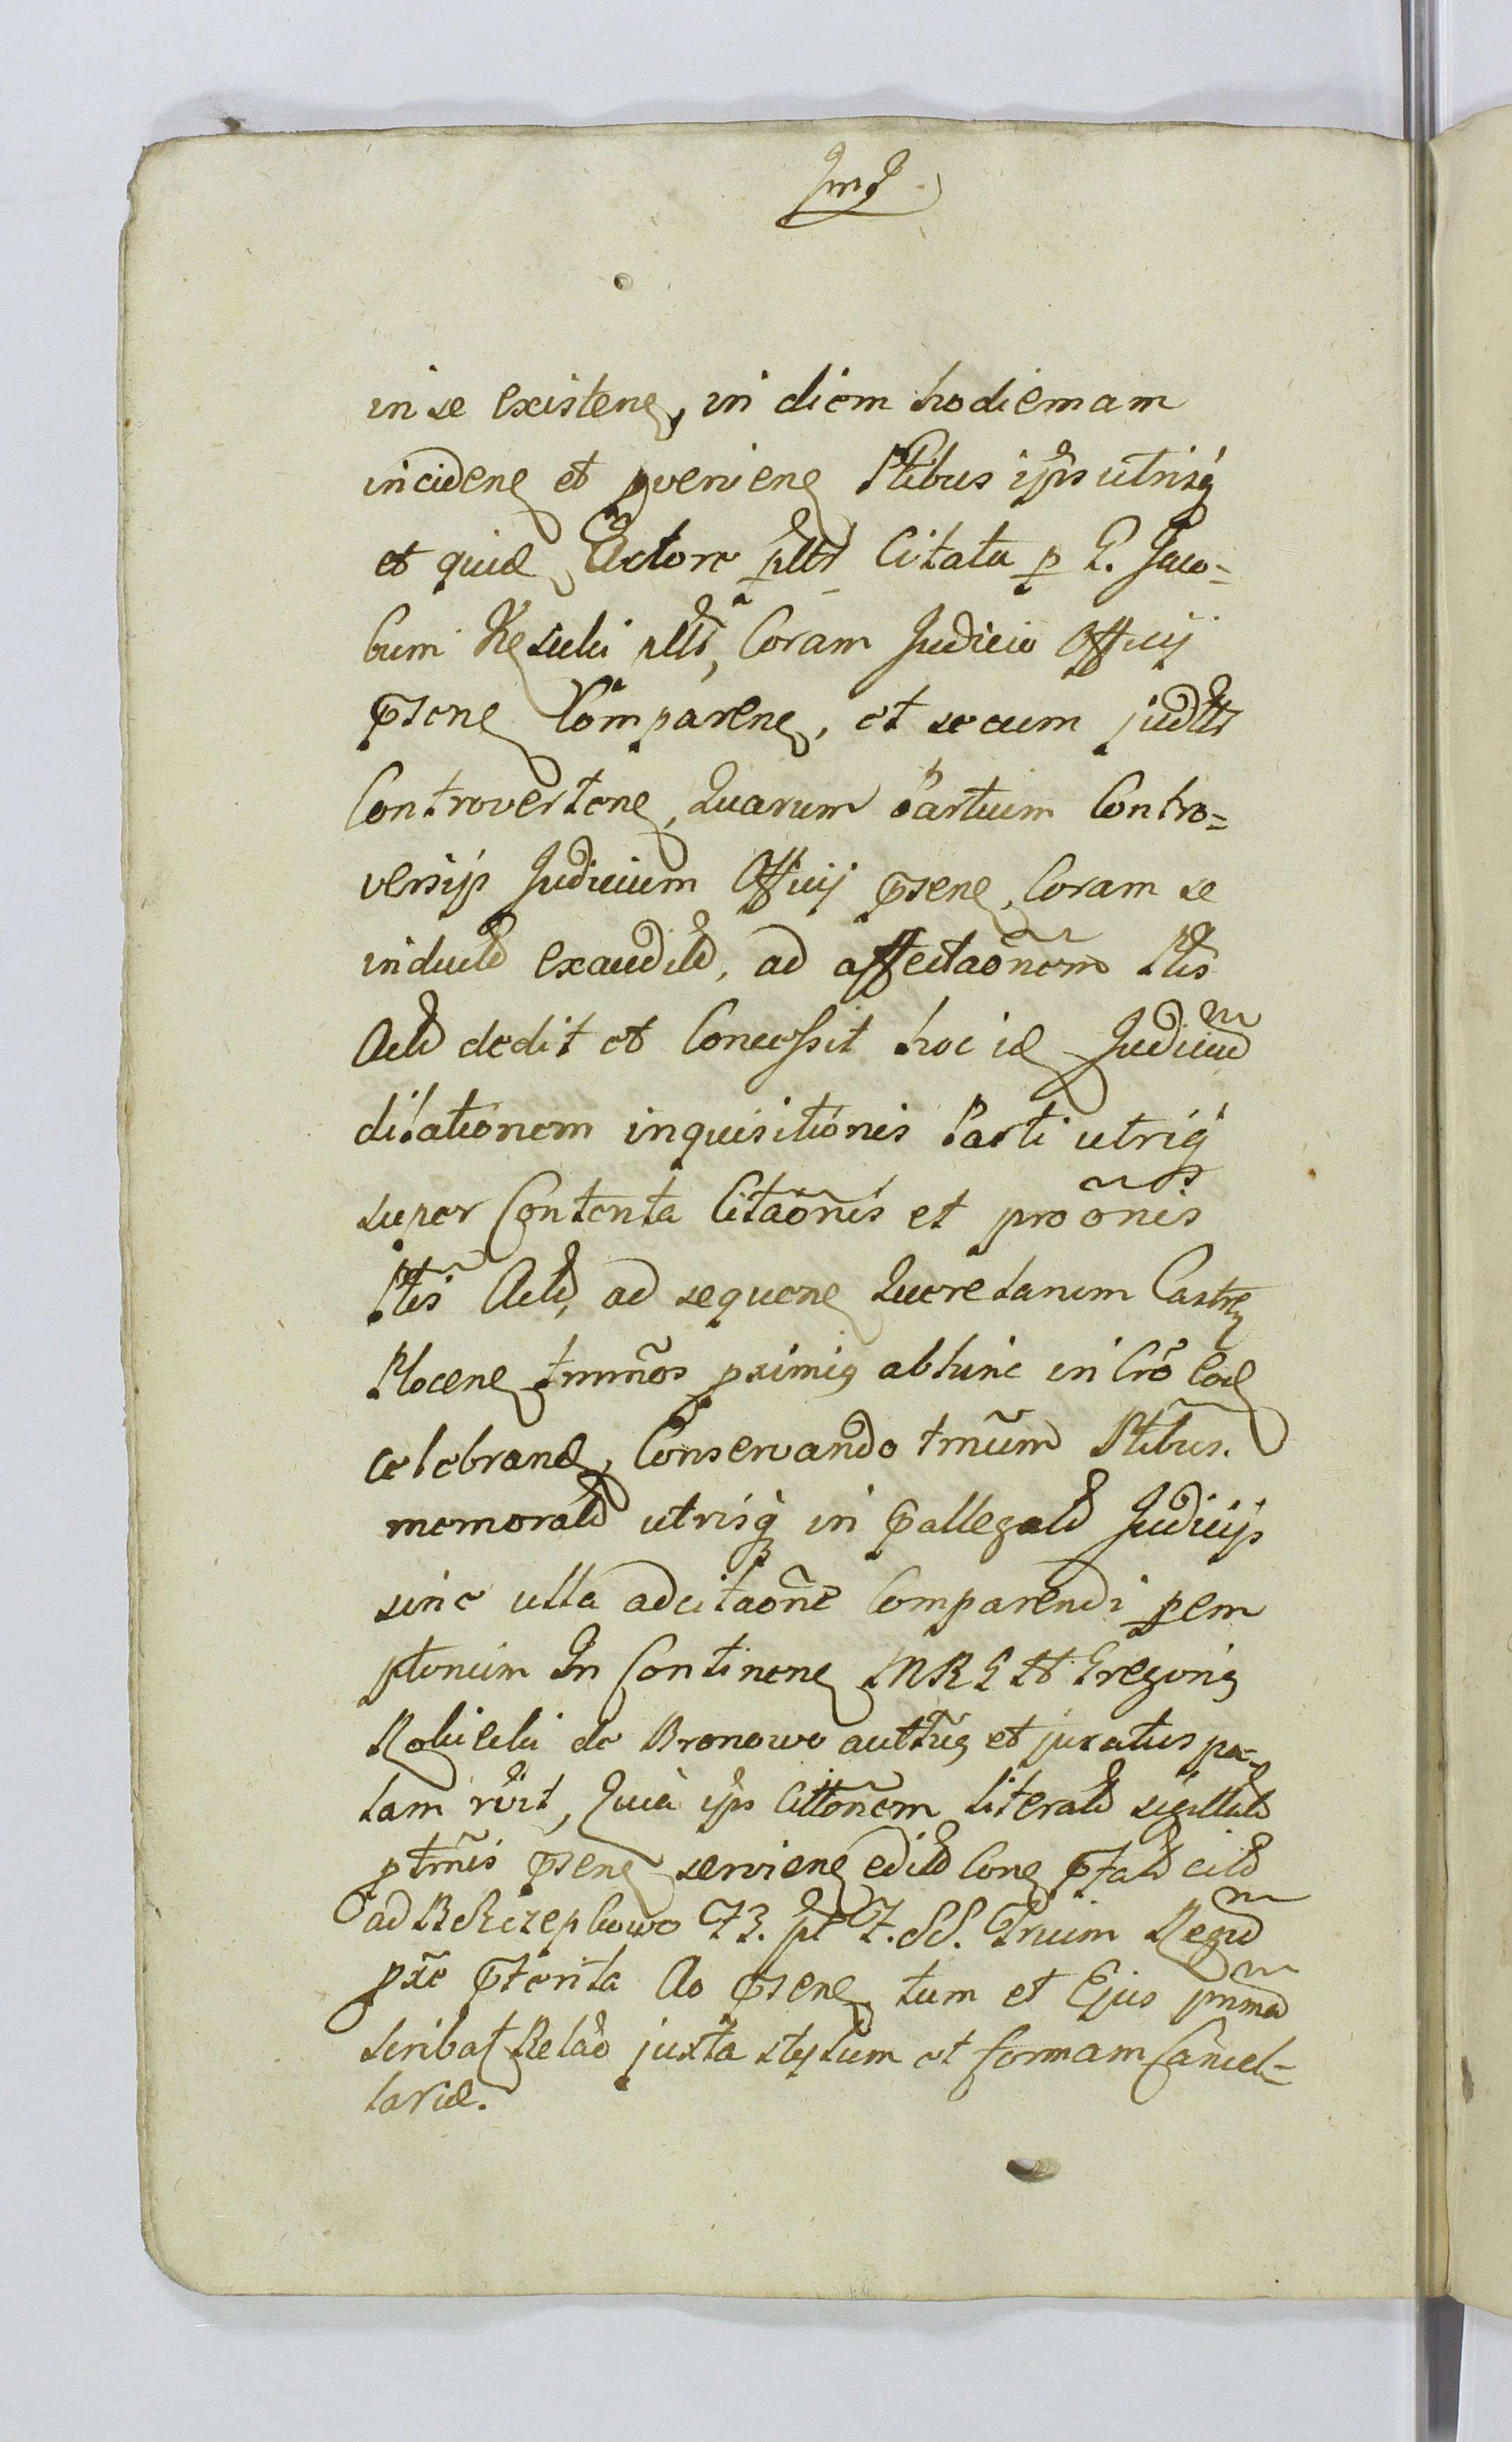 in se existen, in diem hodiernam
inciden et pvenien Ptibus ipis utrisq
et quid Actore pltr Citata p G. Jaco=
bum Kęsicki pltr, Coram Judicio Officij
psen Comparen, et secum judltr
Controverten, Quarum Partium Contro=
versijs Judicium Officij psen, Coram se
induct exaudit, ad affectaõnem Ptis
Act dedit et Concessit hoc id Judiciu
dilationem inquisitionis Parti utriq
super Contenta Citaõnis et proõnis
Ptis Act, ad sequen Querelarum Castr
Plocen tminos pximis abhinc in Cro Cod
celebrand, Conservando tminum Ptibus.
memorat utrisq in pallegat Judicijs
sine ulla adcitaõne Comparendi pem
ptorium In Continen MRG Gregoris
Robiecki de Bronowo auttus et juratus pa=
lam rvit, Quia ips Cittõnem literat sigillat
p tminis psen servien edit Con ptat cit
ad 73. pt Z. SS. Trium Regu
pxe pterita Ao psen tum et Ejus prima
scribat Relao juxta stylum et formam Cancel=
lariæ.